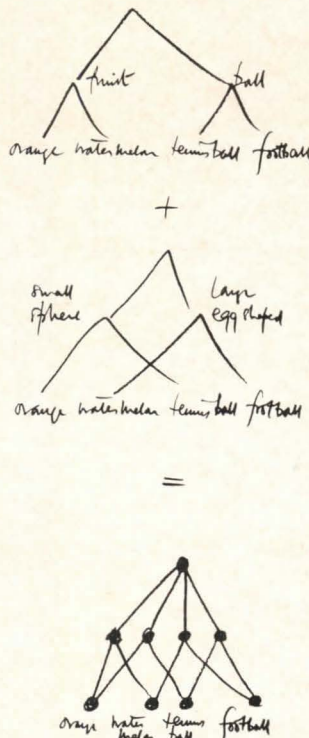 fruit ball
orange watermelon tennis ball football
+
small large
sphere egg shaped
orange watermelon tennis ball football
=
orange water tennis football
melon ball